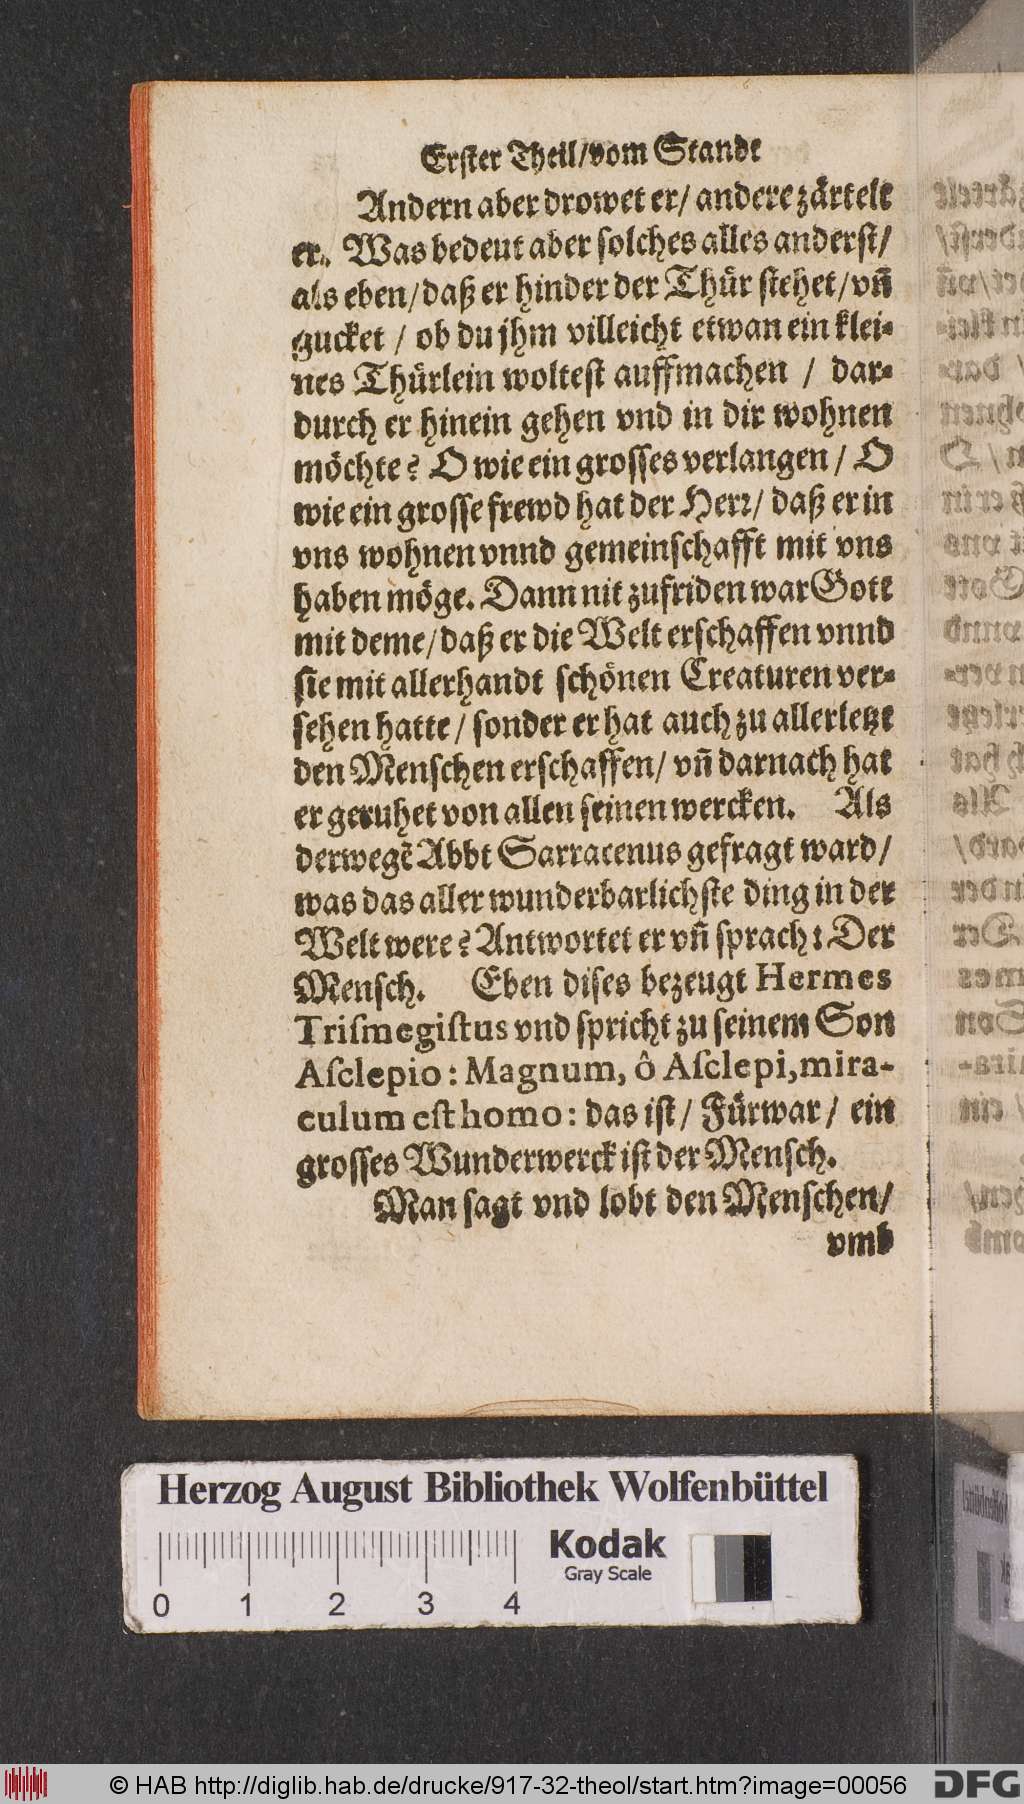 Erster Theil/vom Stande
Andern aber drowet er/ andere zårtelt
er. Was bedeut aber solches alles anderst/
als eben/daß er hinder der Thůr stehet/vñ
gucket / ob du jhm villeicht etwan ein klei-
nes Thůrlein woltest auffmachen / dar-
durch er hinein gehen vnd in dir wohnen
möchte? O wie ein grosses verlangen / O
wie ein grosse frewd hat der Herr/ daß er in
vns wohnen vnnd gemeinschafft mit vns
haben möge. Dann nit zufriden war Gott
mit deme/daß er die Welt erschaffen vnnd
sie mit allerhandt schönen Creaturen ver-
sehen hatte/ sonder er hat auch zu allerletzt
den Menschen erschaffen/ vñ darnach hat
er geruhet von allen seinen wercken. Als
derwegẽ Abbt Sarracenus gefragt ward/
was das aller wunderbarlichste ding in der
Welt were? Antwortet er vñ sprach: Der
Mensch. Eben dises bezeugt Hermes
Triſmegiſtus vnd spricht zu seinem Son
Aſclepio: Magnum, ô Aſclepi, mira-
culum eſt homo: das ist/ Fůrwar/ ein
grosses Wunderwerck ist der Mensch.
Man sagt vnd lobt den Menschen/
vmb
Herzog August Bibliothek Wolfenbüttel
Kodak
Gray Scale
0 1 2 3 4
© HAB http://diglib.hab.de/drucke/917-32-theol/start.htm?image=00056
DFG